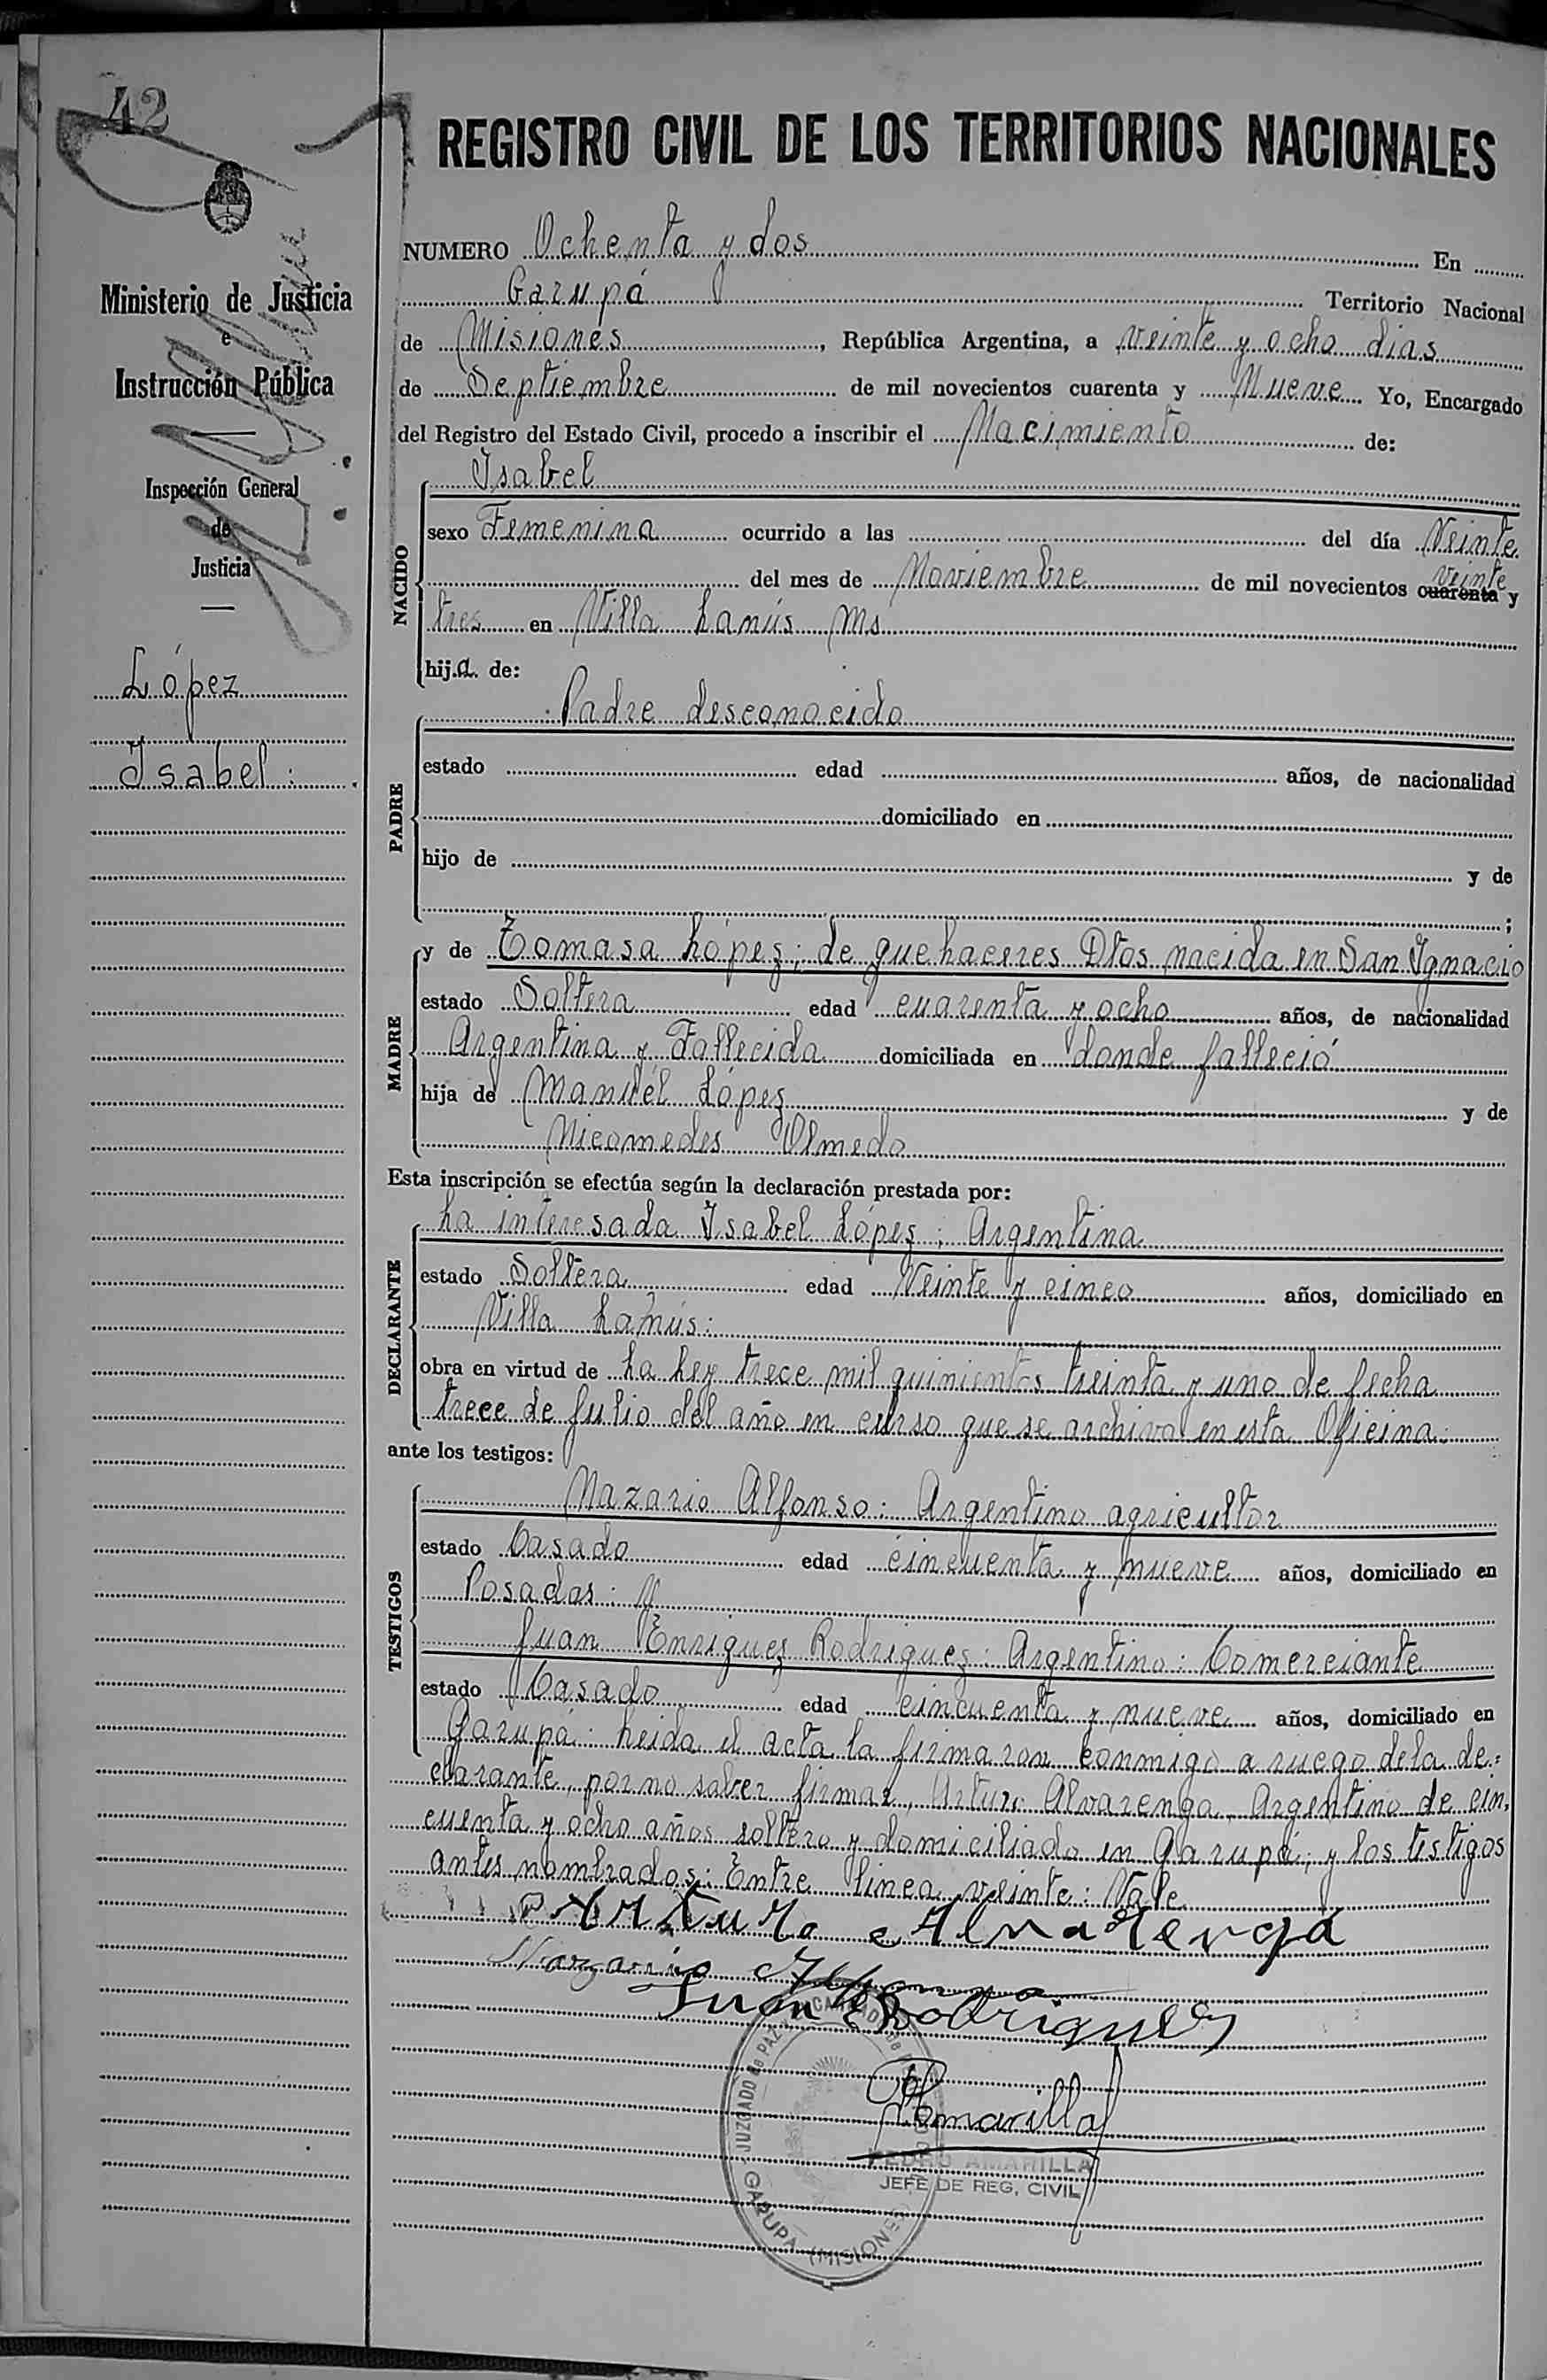 42
REGISTRO CIVIL DE LOS TERRITORIOS NACIONALES
Ministerio de Justicia
e
Instrucción Pública
Inspección General
de
Justicia
López
Isabel :
NUMERO Ochenta y dos En
Garupá Territorio Nacional
de Misiones, República Argentina, a veinte y ocho dias
de Septiembre de mil novecientos cuarenta y Nueve Yo, Encargado
del Registro del Estado Civil, procedo a inscribir el Nacimiento de:
NACIDO
Isabel
sexo Femenina ocurrido a las del día Veinte
veinte
del mes de Noviembre de mil novecientos cuarenta y
tres en Villa Lanús Ms
hij.a. de:
PADRE
Padre desconocido
estado edad años, de nacionalidad
domiciliado en
hijo de y de
;
MADRE
y de Tomasa López; de quehaceres Dtos nacida en San Ygnacio
estado Soltera edad cuarenta y ocho años, de nacionalidad
Argentina y Fallecida domiciliada en donde falleció
hija de Manuél López y de
Nicomedes Olmedo
Esta inscripción se efectúa según la declaración prestada por:
DECLARANTE
La interesada Isabel López : Argentina
estado Soltera edad Veinte y cinco años, domiciliado en
Villa Lanús:
obra en virtud de La Ley trece mil quinientos treinta y uno de fecha
trece de Julio del año en curso que se archiva en esta Oficina.
ante los testigos:
TESTIGOS
Nazario Alfonso: Argentino agricultor
estado Casado edad cincuenta y nueve años, domiciliado en
Posadas :
Juan Enriquez Rodriguez: Argentino: Comerciante
estado Casado edad cincuenta y nueve años, domiciliado en
Garupá: Leida el acta la firmaron conmigo a ruego dela de=
clarante, por no saber firmar, Arturo Alvarenga, Argentino de cin,
cuenta y ocho años soltero y domiciliado en Garupá, y los testigos
antes nombrados: Entre linea veinte: Vale
Arturo Alvarenga
Nazario Alfonso
Juan E Rodriguez
Amarilla
PEDRO AMARILLA
JEFE DE REG. CIVIL
JUZGADO de PAZ
GARUPA (MISIONES)